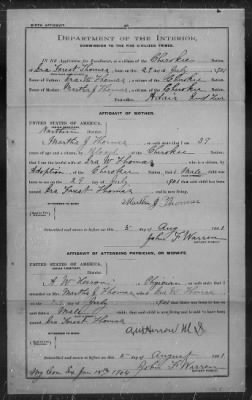 BIRTH AFFIDAVIT.
DEPARTMENT OF THE INTERIOR,
COMMISSION TO THE FIVE CIVILIZED TRIBES.
IN RE Application for Enrollment, as a citizen of the Cherokee Nation,
of Ira Forest Thomas, born on the 29 day of July, 1901
Name of Father: Ira W Thomas a citizen of the Cherokee Nation.
Name of Mother: Martha J Thomas a citizen of the Cherokee Nation.
Post-office Ind Ter
AFFIDAVIT OF MOTHER.
UNITED STATES OF AMERICA,
Northern District.
I, Martha J Thomas, on oath state that I am 27
years of age and a citizen, by blood, of the Cherokee Nation;
that I am the lawful wife of Ira W Thomas, who is a citizen, by
Adoption of the Cherokee Nation; that a Male child was
born to me on the 29 day of July, 1901; that said child has been
named Ira Forest Thomas, and is now living.
Martha J Thomas
Subscribed and sworn to before me this 5 day of Aug 1901
John F Warren
NOTARY PUBLIC.
AFFIDAVIT OF ATTENDING PHYSICIAN, OR MIDWIFE.
UNITED STATES OF AMERICA,
District.
I, A W Herron, a Physician, on oath state that I
attended on Mrs. Martha J Thomas, wife of Ira W Thomas
on the 29 day of July, 1901; that there was born to her on
said date a Male child; that said child is now living and is said to have been
named Ira Forest Thomas
A W Herron M D
Subscribed and sworn to before me this 5 day of August 1901
John F Warren
NOTARY PUBLIC.
My Com Ex Jan 1904